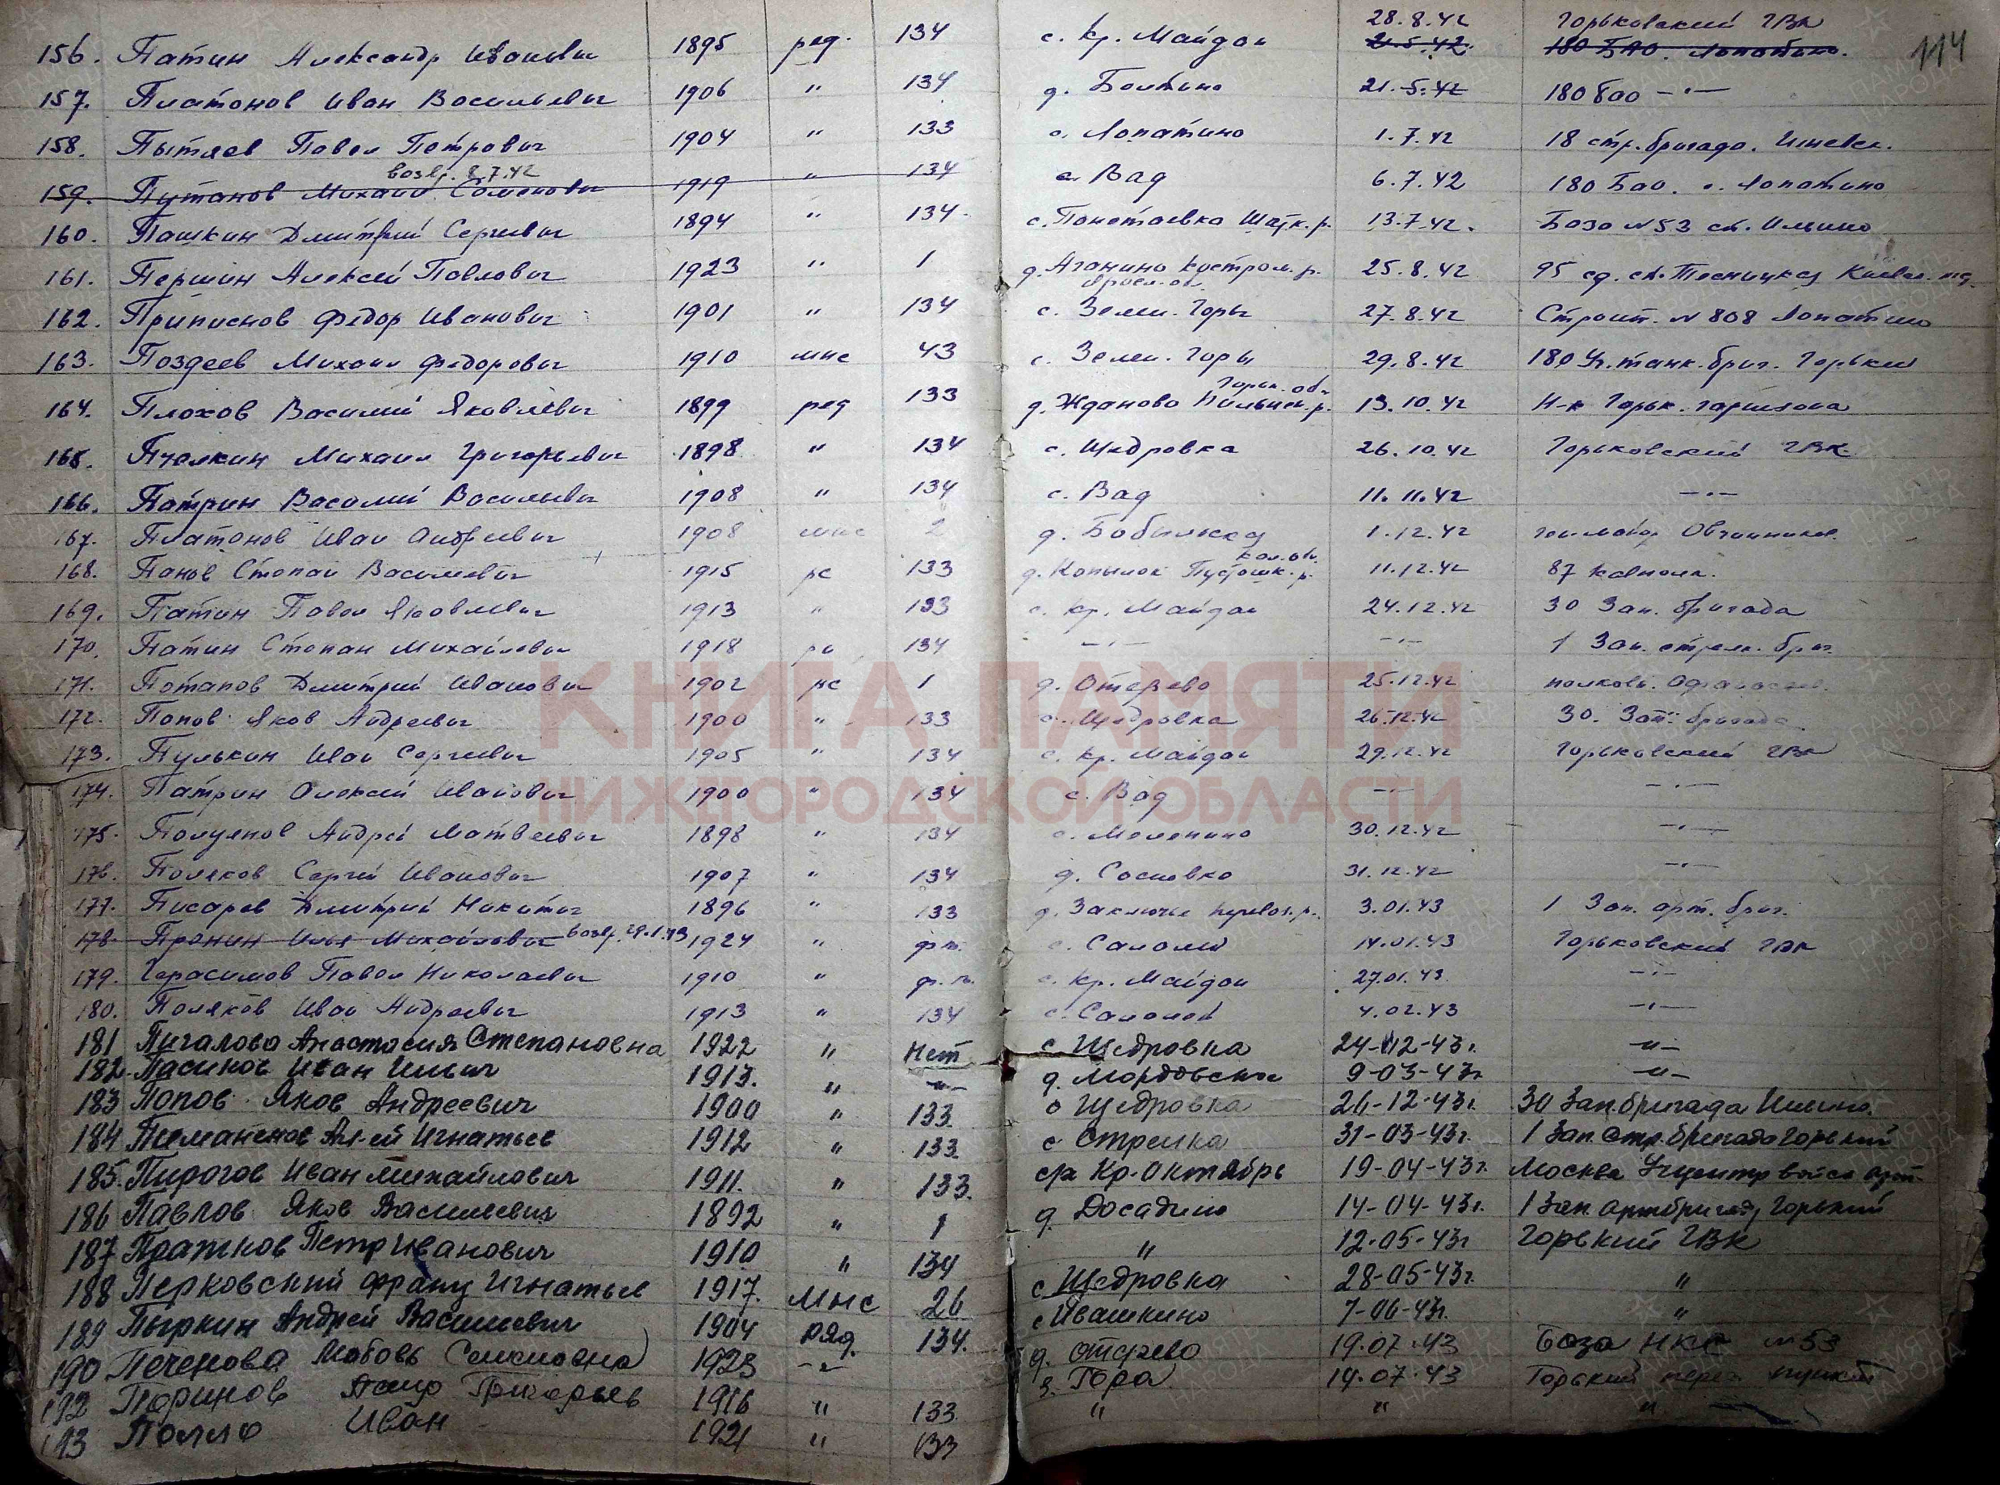 114
28.8.42 Горьковский ГВК
156. Патин Александр Иванович 1895 ряд. 134 с. Кр. Майдан 21.5.42 180 БАО. Лопатино.
157. Платонов Иван Васильевич 1906 " 134 д. Болтино 21.5.42 180 бао —"—
158. Пытяев Павел Петрович 1904 " 133 с. Лопатино 1.7.42 18 стр. бригада.
возвр. 8.7.42
159. Путанов Михаил Семенович 1919 " 134 с. Вад 6.7.42 180 Бао. с. Лопатино
160. Пашкин Дмитрий Сергеевич 1894 " 134 с. Понетаевка Шатк. р. 13.7.42. База №53 ст. Ильино
161. Першин Алексей Павлович 1923 " 1 д. Аганино Костром. р. 25.8.42 95 сд. ст. Тесницкая
Яросл. об.
162. Приписнов Федор Иванович 1901 " 134 с. Зелен. Горы 27.8.42 Строит. №808 Лопатино
163. Поздеев Михаил Федорович 1910 мнс 43 с. Зелен. Горы 29.8.42 180 Уч. танк. бриг. Горький
Горьк. об.
164. Плохов Василий Яковлевич 1899 ряд 133 д. Жданово Пильнен. р. 13.10.42 Н-к Горьк. гарнизона
165. Пчелкин Михаил Григорьевич 1898 " 134 с. Щедровка 26.10.42 Горьковский ГВК
166. Патрин Василий Васильевич 1908 " 134 с. Вад 11.11.42 —"—
167. Платонов Иван Андреевич 1908 мнс 2 д. Бобыльская 1.12.42 Овчинников.
Кал. об.
168. Панов Степан Васильевич 1915 рс 133 д. Копылок Пустошк. р. 11.12.42 87 кавполк.
169. Патин Павел Яковлевич 1913 " 133 с. Кр. Майдан 24.12.42 30 Зап. бригада
170. Патин Степан Михайлович 1918 рс 134 —"— —"— 1 Зап. стрелк. бриг.
171. Потапов Дмитрий Иванович 1902 рс 1 д. Отерево 25.12.42
172. Попов Яков Андреевич 1900 " 133 с. Щедровка 26.12.42 30. Зап. бригада
173. Пулькин Иван Сергеевич 1905 " 134 с. Кр. Майдан 29.12.42 Горьковский ГВК
174. Патрин Алексей Иванович 1900 " 134 с. Вад —"— —"—
175. Полуянов Андрей Матвеевич 1898 " 134 с. Меленино 30.12.42 —"—
176. Поляков Сергей Иванович 1907 " 134 д. Сосновка 31.12.42 —"—
177. Писарев Дмитрий Никитич 1896 " 133 д. Заключье Перевоз. р. 3.01.43 1 Зап. арт. бриг.
178. Пронин Илья Михайлович возвр. 29.1.43 1924 " ф.п. с. Салалей 14.01.43 Горьковский ГВК
179. Герасимов Павел Николаевич 1910 " ф.п. с. Кр. Майдан 27.01.43. —"—
180. Поляков Иван Андреевич 1913 " 134 с. Салалей 4.02.43 —"—
181 Пигалова Анастасия Степановна 1922 " Нет с Щедровка 24-12-43г. —"—
182. Пасинов Иван Ильич 1913. " —"— д. Мордовские 9-03-43г —"—
183 Попов Яков Андреевич 1900 " 133. с Щедровка 26-12-43г. 30 Зап. бригада Ильино.
184 Ал-ей Игнатьев 1912 " 133. с Стрелка 31-03-43г. 1 Зап. Стр. бригада Горький
185. Пирогов Иван Михайлович 1911. " 133. с/х Кр. Октябрь 19-04-43г. Москва
186 Павлов Яков Васильевич 1892 " 1 д. Досадино 14-04-43г. 1 Зап. артбригад, Горький
187 Платнов Петр Иванович 1910 " 134 " 12-05-43г Горький ГВК
188 Перковский Франц Игнатьев 1917. Мнс 26 с Щедровка 28-05-43г. "
189 Пыркин Андрей Васильевич 1904 ряд. 134. с Ивашкино 7-06-43г. "
190 Печенова Любовь Семеновна 1923 —"— д. Отерево 19.07.43 База НКС №53
192 Поринов Григорьев 1916 " 133 з. Гора 14.07.43 Горький перес. пункт
193 Иван 1921 " 133 " " "
КНИГА ПАМЯТИ
НИЖЕГОРОДСКОЙ ОБЛАСТИ